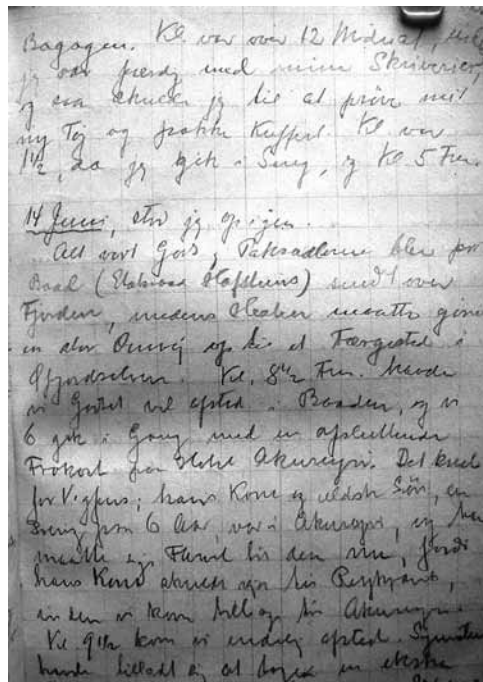 Bagagen. Kl var over 12 Midnat,
jeg var færdig med mine Skriverier,
og saa skulde jeg til at prøve mit
ny Tøj og pakke Kuffert. Kl var
1½, da jeg gik i Seng, og Kl 5 Fm.
14 Juni, stod jeg op igen.
Alt vort Gods, Paksadlerne blev pr
Baad (Etatsraad Hafsteins) sendt over
Fjorden, medens Hestene maatte gøre
en stor Omvej op til et Færgested i
Øfjordselven. Kl. 8½ Fm. havde
vi Godset vel afsted i Baaden, og vi
6 gik i Gang med en afsluttende
Frokost paa Hotel Akureyri. Det
for Vigfus; hans Kone og ældste Søn, en
Dreng paa 6 Aar, var i Akureyri, og han
maatte sige Farvel til dem nu, fordi
hans Kone skulde rejse til Reykjavik,
inden vi kom tilbage til Akureyri.
Kl 9½ kom vi endelig afsted.
havde tilladt sig at tage en ekstra